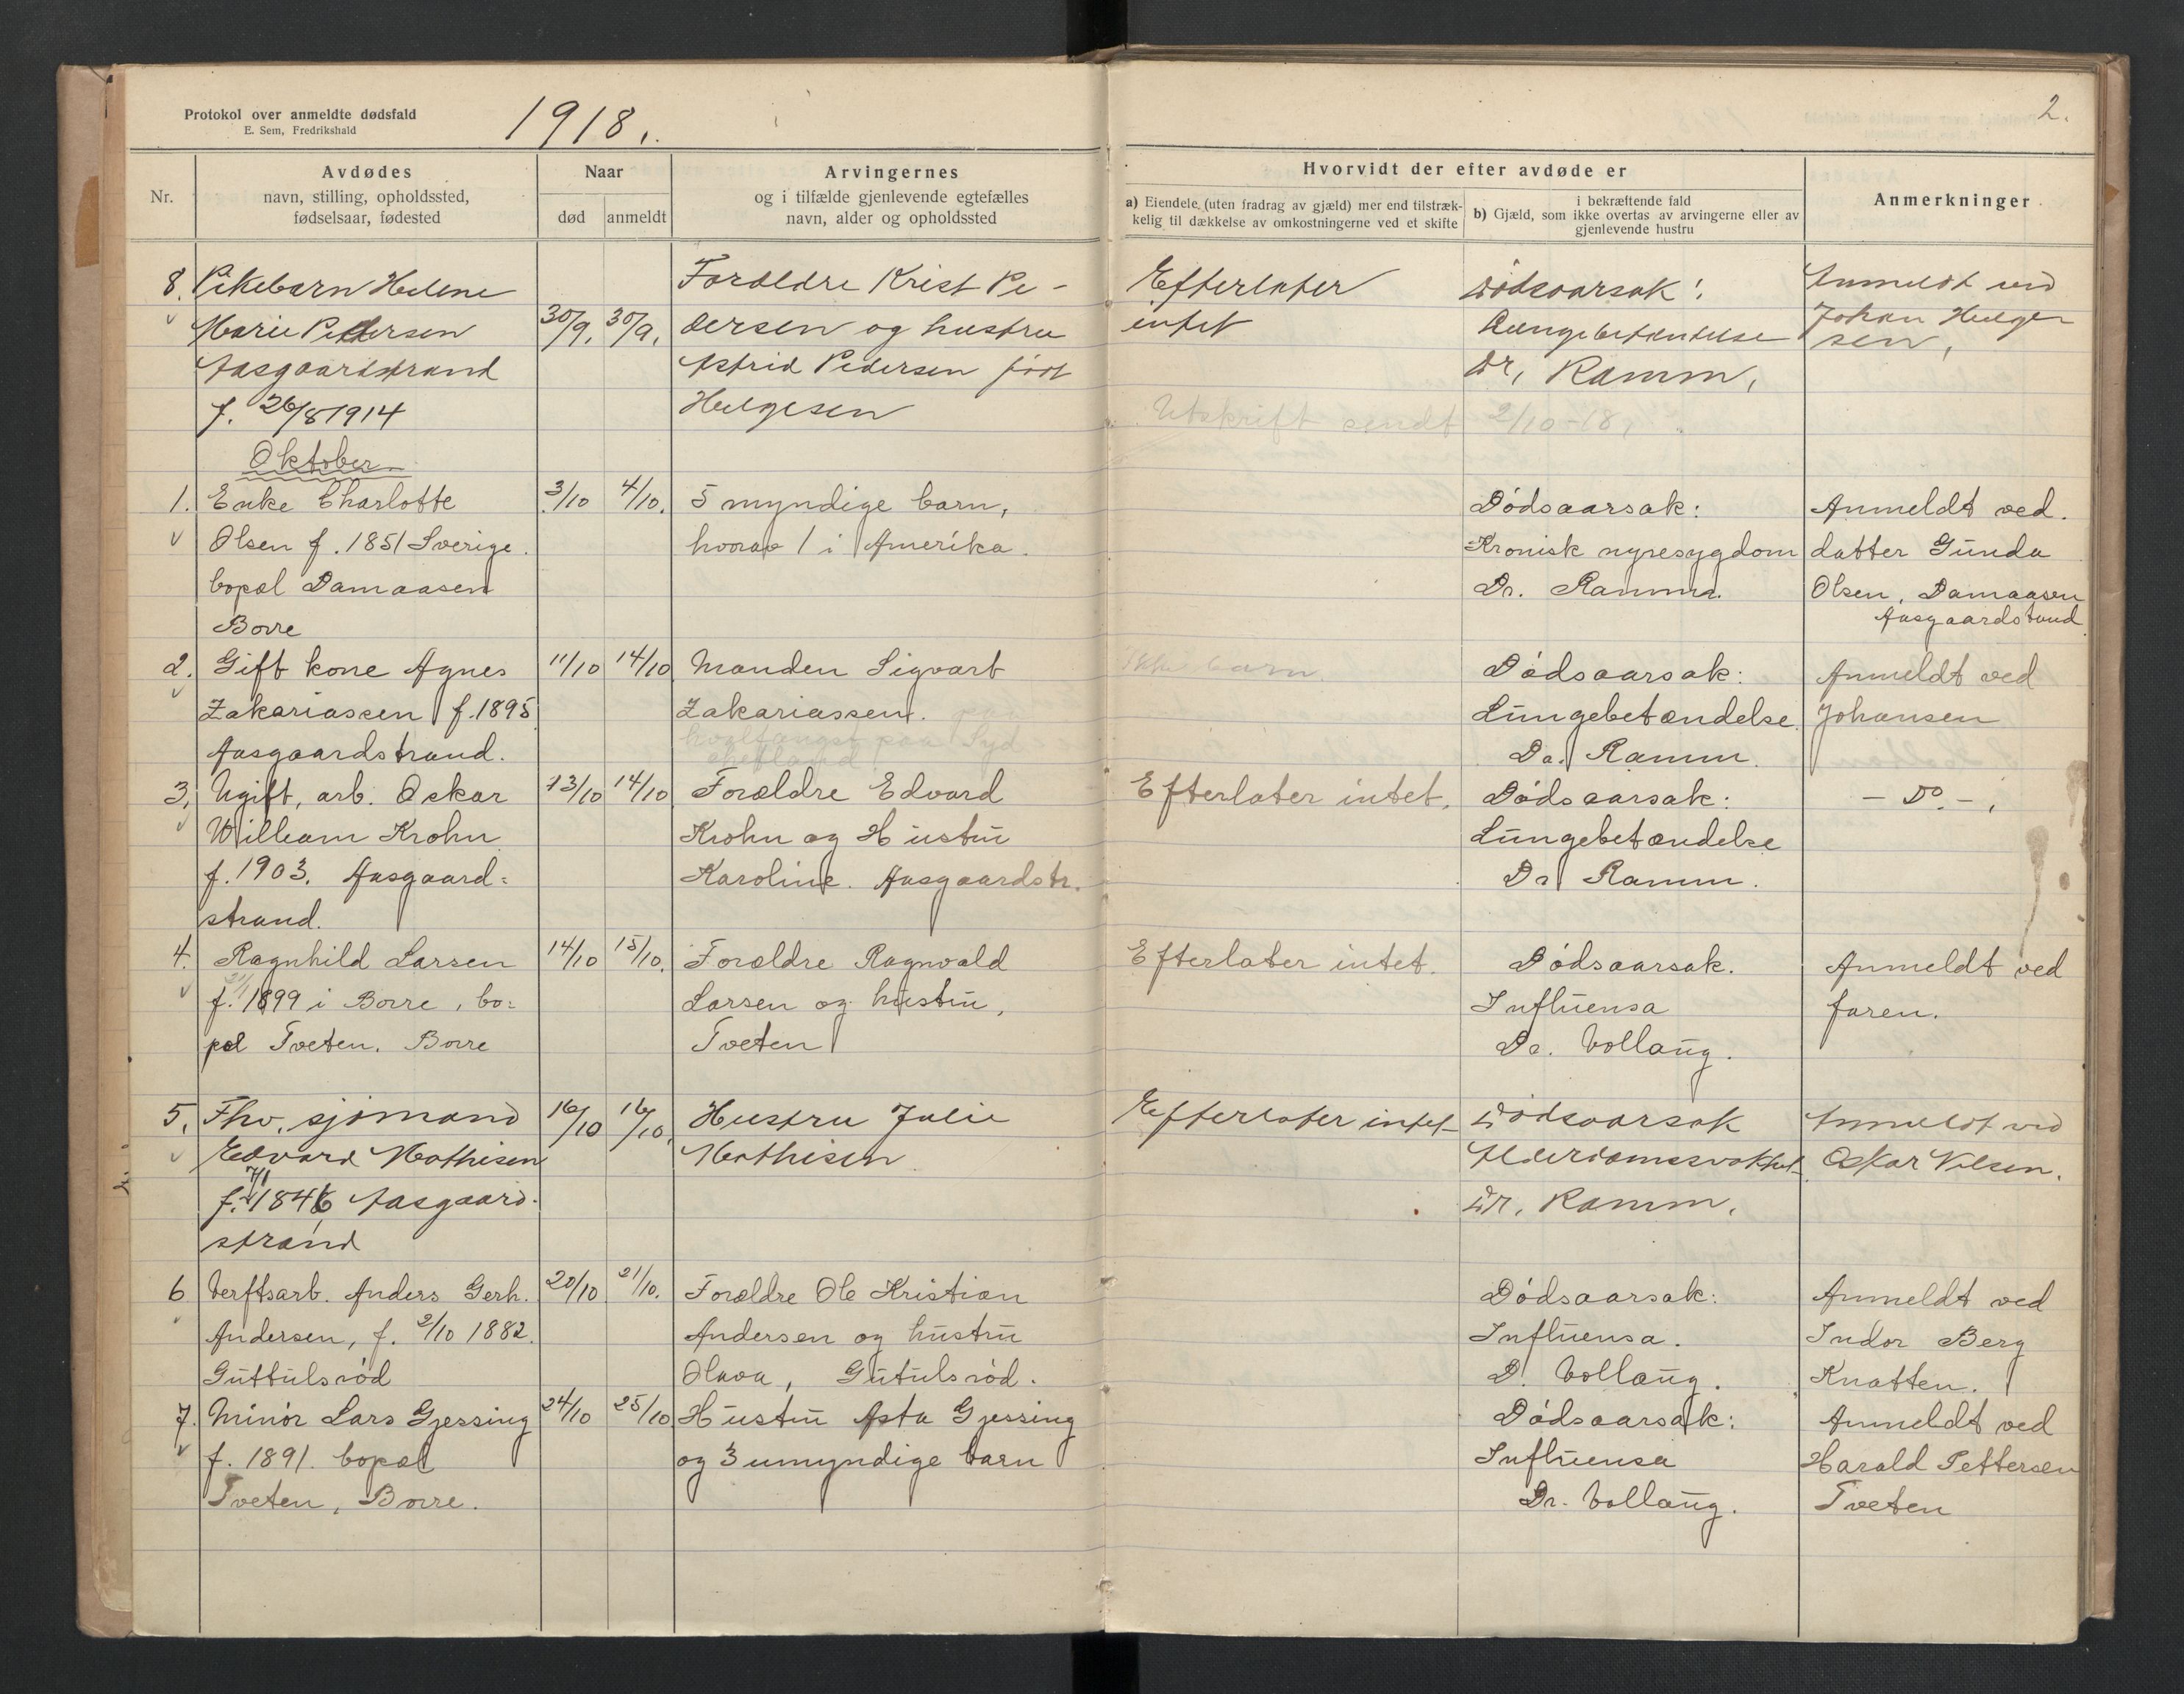 Protokol over anmeldte dødsfald
E. Sem, Fredrikshald
1918.
2.
Nr.
Avdødes
navn, stilling, opholdssted,
fødselsaar, fødested
Naar
død
anmeldt
Arvingernes
og i tilfælde gjenlevende egtefælles
navn, alder og opholdssted
Hvorvidt der efter avdøde er
a) Eiendele (uten fradrag av gjæld) mer end tilstræk-
kelig til dækkelse av omkostningerne ved et skifte
i bekræftende fald
b) Gjæld, som ikke overtas av arvingerne eller av
gjenlevende hustru
Anmerkninger
8.
Pikebarn Helene
Marie Pedersen
Aasgaardstrand
f. 26/8 1914
30/9.
30/9.
Forældre Krist Pe-
dersen og hustru
Astrid Pedersen født
Helgesen
Efterlater
intet
Dødsaarsak:
Lungebetændelse
Dr. Ramm.
Anmeldt ved
Johan Helge
sen.
Utskrift sendt 2/10-18.
Oktober
1.
Enke Charlotte
Olsen f. 1851 Sverige.
bopæl Damaasen
Borre
3/10
4/10.
5 myndige barn,
hvorav 1 i Amerika.
Dødsaarsak:
Kronisk nyresygdom
Dr. Ramm.
Anmeldt ved.
datter Gunda
Olsen, Damaasen
Aasgaardstrand
2.
Gift kone Agnes
Zakariassen f. 1895
Aasgaardstrand.
11/10
14/10
Manden Sigvart
Zakariassen.
hvalfangst paa Syd
shetland
Ikke barn.
Dødsaarsak:
Lungebetændelse
Dr. Ramm.
Anmeldt ved
Johansen
3.
Ugift, arb. Oskar
William Krohn
f. 1903. Aasgaard=
strand.
13/10
14/10
Forældre Edvard
Krohn og Hustru
Karoline. Aasgaardstr.
Efterlater intet.
Dødsaarsak:
Lungebetændelse
Dr Ramm.
- Do. -
4.
Ragnhild Larsen
f. 1899 i Borre, bo=
pæl Tveten. Borre
14/10
15/10.
Forældre Ragnvald
Larsen og hustru,
Tveten
Efterlater intet.
Dødsaarsak.
Influensa
Dr. Vollaug.
Anmeldt ved
faren.
5.
Fhv. sjømand
Edvard Mathisen
f. 7/1 1846 Aasgaard-
strand
16/10
16/10.
Hustru Julie
Mathisen
Efterlater intet
Dødsaarsak
Alderdomssvakhet
Dr. Ramm.
Anmeldt ved
Oskar Nilsen.
6
Verftsarb. Anders Gerh.
Andersen, f. 2/10 1882.
Guttulsrød
20/10
21/10.
Forældre Ole Kristian
Andersen og hustru
Olava, Gutulsrød.
Dødsaarsak:
Influensa.
D. Vollaug.
Anmeldt ved
Indor Berg
Knatten.
7.
Minør Lars Gjessing
f. 1891. bopæl
Tveten, Borre.
24/10
25/10
Hustru Asta Gjessing
og 3 umyndige barn
Dødsaarsak:
Influensa
Dr. Vollaug.
Anmeldt ved
Harald Pettersen
Tveten